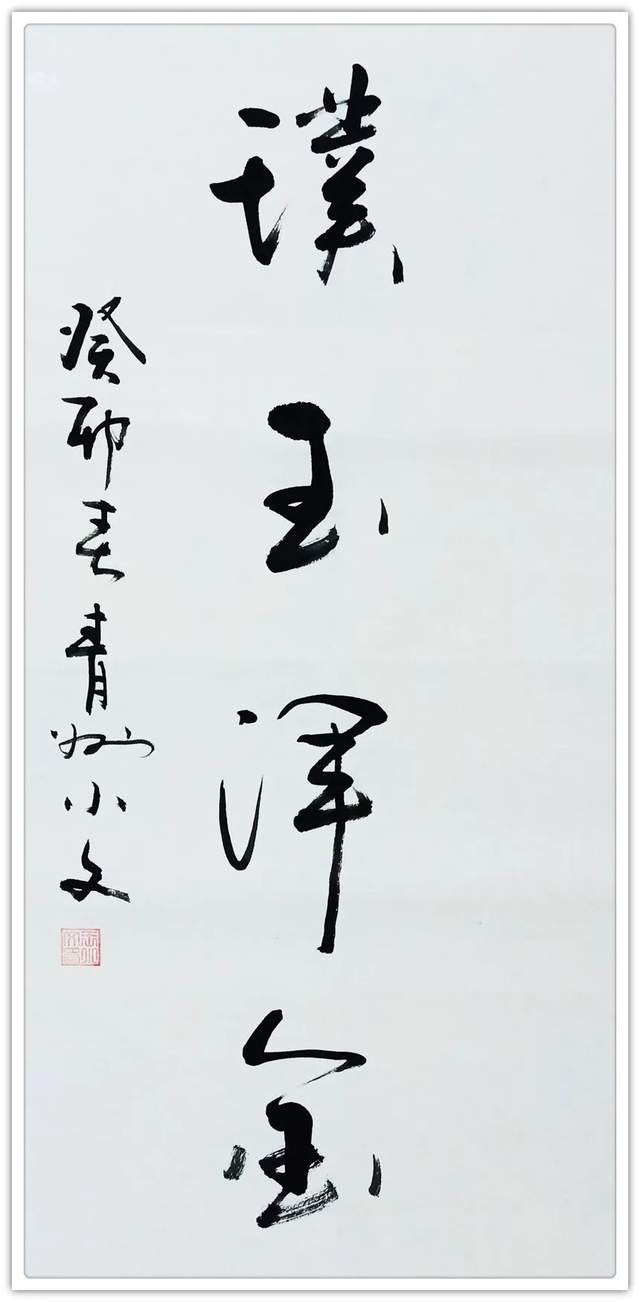 璞玉浑金
癸卯春青州小文